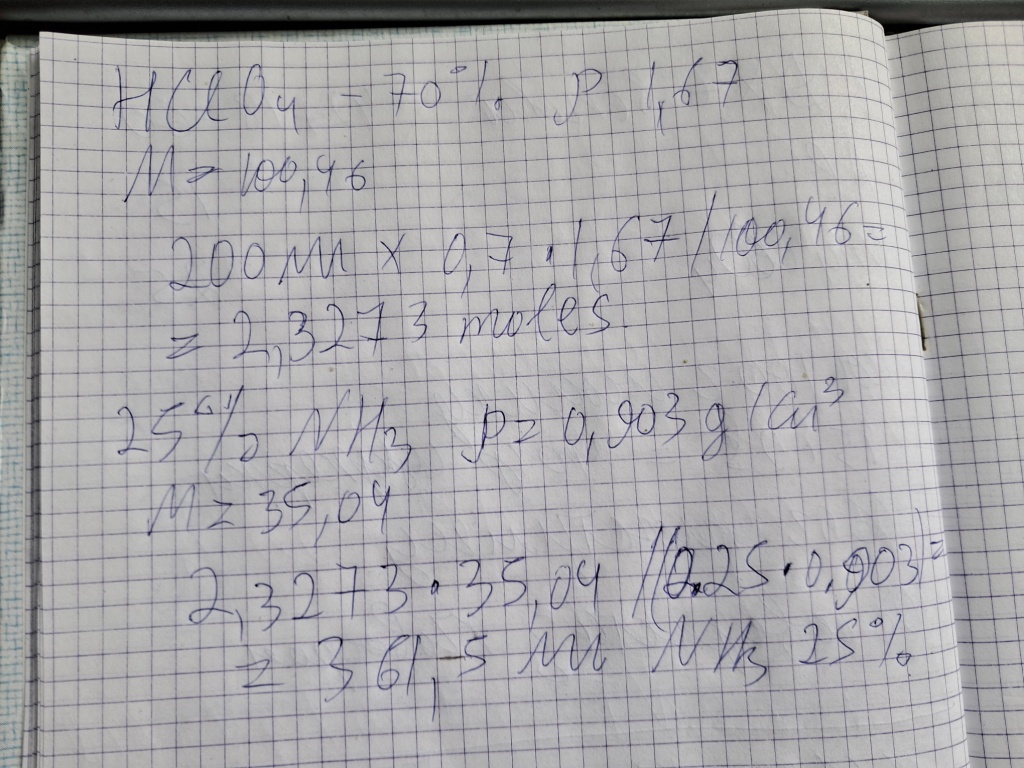 HClO₄ - 70% ρ 1,67
M = 100,46
200 мл x 0,7 · 1,67 / 100,46 =
= 2,3273 moles
25% NH₃ ρ = 0,903 g/cm³
M = 35,04
2,3273 · 35,04 / (0.25 · 0,903) =
= 361,5 мл NH₃ 25%